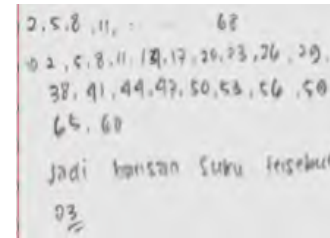 2, 5, 8, 11, ... 68
2, 5, 8, 11, 14, 17, 20, 23, 26, 29,
38, 41, 44, 47, 50, 53, 56, 59
65, 68
Jadi barisan suku tersebut
23